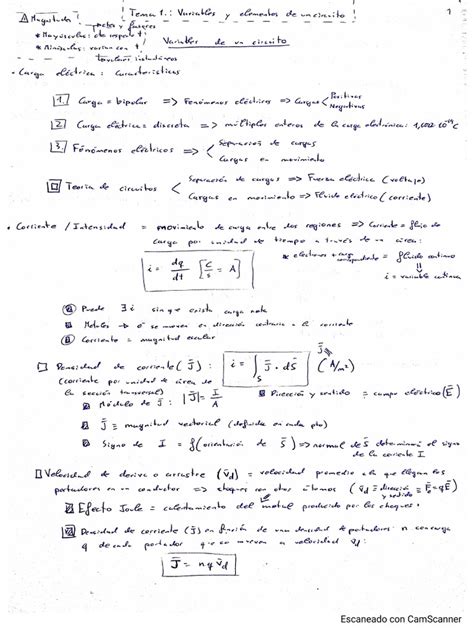 Tema 1: Variables y elementos de un circuito
1
⚠ Magnitudes
* Mayúsculas: cte respecto t
* Minúsculas: varían con t
valores instantáneos
Variables de un circuito
• Carga eléctrica: características
1. Carga = bipolar => Fenómenos eléctricos => Cargas < Positivas
Negativas
2 Carga eléctrica = discreta => múltiplos enteros de la carga electrónica: 1,602·10⁻¹⁹ C
3. Fenómenos eléctricos => < Separación de cargas
Cargas en movimiento
Teoría de circuitos < Separación de cargas => Fuerza eléctrica (voltaje)
Cargas en movimiento => Fluido eléctrico (corriente)
• Corriente / Intensidad = movimiento de carga entre dos regiones => Corriente = flujo de
carga por unidad de tiempo a través de un área:
i = dq/dt [C/s = A]
* electrones + carga correspondiente = fluido continuo
⇓
i = variable continua
Puede ∃ i sin que exista carga neta
Metales → e⁻ se mueven en dirección contraria a la corriente
Corriente = magnitud escalar
Densidad de corriente (J̄): i = ∫_S J̄ · dS̄ J̄ (A/m²)
(corriente por unidad de área de
la sección transversal)
Dirección y sentido = campo eléctrico (Ē)
Módulo de J̄: |J̄| = I/A
J̄ ≡ magnitud vectorial (definida en cada pto)
Signo de I = f(orientación de S̄) => normal de S̄ determina el signo
de la corriente I
Velocidad de deriva o arrastre (v̄d) = velocidad promedio a la que llegan los
portadores en un conductor => choques con otros átomos (v̄d ≡ dirección y sentido = F̄e = qĒ)
Efecto Joule = calentamiento del metal producido por los choques.
Densidad de corriente (J̄) en función de una densidad de portadores n con carga
q de cada portador que se mueven a velocidad v̄d:
J̄ = nq v̄d
Escaneado con CamScanner